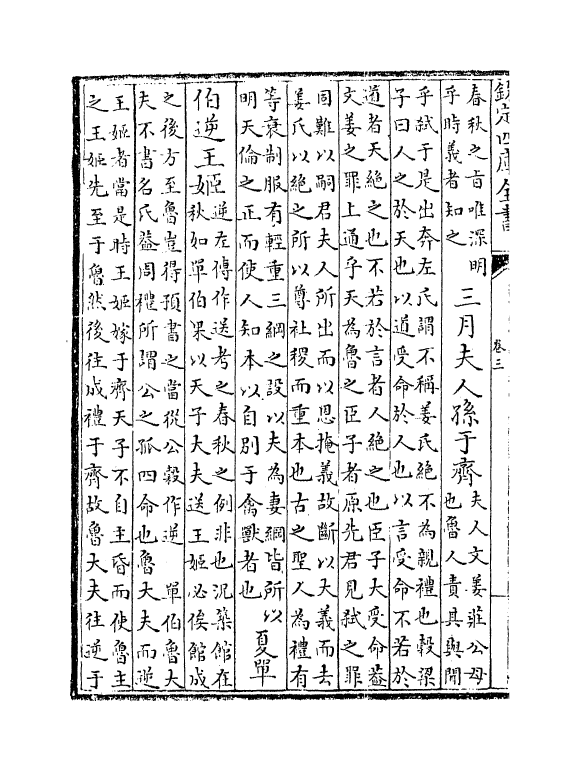 欽定四庫全書
卷三
春秋之旨唯深明
乎時義者知之
三月夫人孫于齊
夫人文姜莊公母
也魯人責其與聞
乎弑于是出奔左氏謂不稱姜氏絶不為親禮也榖梁
子曰人之於天也以道受命於人也以言受命不若於
道者天絶之也不若於言者人絶之也臣子大受命葢
文姜之罪上通乎天為魯之臣子者原先君見弑之罪
固難以嗣君夫人所出而以恩掩義故斷以大義而去
姜氏以絶之所以尊社稷而重本也古之聖人為禮有
等衰制服有輕重三綱之設以夫為妻綱皆所以
明天倫之正而使人知本以自別于禽獸者也
夏單
伯逆王姬
逆左傳作送考之春秋之例非也況築館在
秋如單伯果以天子大夫送王姬必俟館成
之後方至魯豈得預書之當從公榖作逆　單伯魯大
夫不書名氏葢周禮所謂公之孤四命也魯大夫而逆
王姬者當是時王姬嫁于齊天子不自主昏而使魯主
之王姬先至于魯然後往成禮于齊故魯大夫往逆于